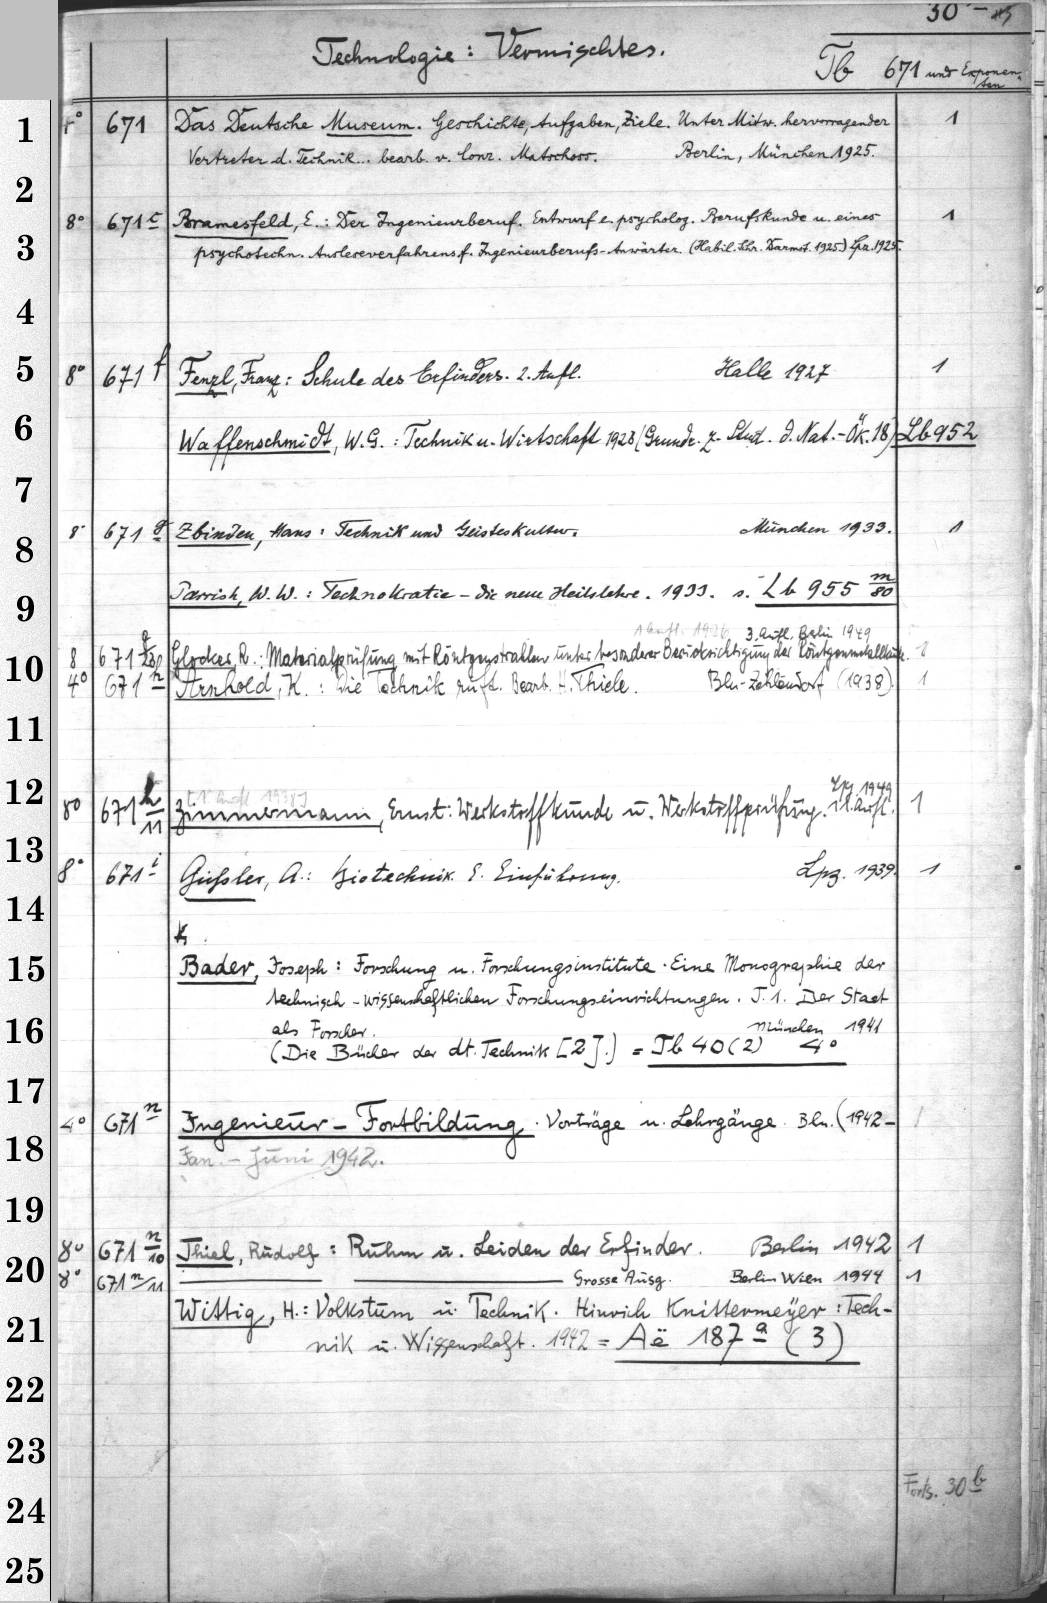 30
Technologie: Vermischtes.
Tb 671 und Exponenten
1
4° 671 Das Deutsche Museum. Geschichte, Aufgaben, Ziele. Unter Mitw. hervorragender 1
Vertreter d. Technik... bearb. v. Conr. Matschoss. Berlin, München 1925.
2
8° 671 c Bramesfeld, E.: Der Ingenieurberuf. Entwurf e. psycholog. Berufskunde u. eines 1
3
psychotechn. Ausleseverfahrens f. Ingenieurberufs-Anwärter. (Habil. Schr. Darmst. 1925.) Lpz. 1925.
4
5
8° 671 f Fenzl, Franz: Schule des Erfinders. 2. Aufl. Halle 1927 1
6
Waffenschmidt, W. G.: Technik u. Wirtschaft 1928 (Grundr. z. Stud. d. Nat.-Ök. 18) Lb 952
7
8
8° 671 g Zbinden, Hans: Technik und Geisteskultur. München 1933. 1
9
Parrish, W. W.: Technokratie - die neue Heilslehre. 1933. s. Lb 955 m/80
3. Aufl. Berlin 1949
10
8 671 Glocker, R.: Materialprüfung mit Röntgenstrahlen unter besonderer Berücksichtigung der Röntgenmetallkunde. 1
4° 671 h Arnhold, K.: Die Technik ruft. Bearb. H. Thiele. Bln-Zehlendorf (1938). 1
11
12
[1. Aufl. 1938] Lpz. 1949
8° 671 h/11 Zimmermann, Ernst: Werkstoffkunde u. Werkstoffprüfung. 11. Aufl. 1
13
8° 671 i Gießler, A.: Biotechnik. E. Einführung. Lpz. 1939. 1
14
k.
15
Bader, Joseph: Forschung u. Forschungsinstitute. Eine Monographie der
technisch-wissenschaftlichen Forschungseinrichtungen. T. 1. Der Staat
16
als Forscher. München 1941
(Die Bücher der dt. Technik [2].) = Tb 40 (2) 4°
17
4° 671 n Ingenieur-Fortbildung. Vorträge u. Lehrgänge. Bln. (1942- 1
18
Jan. - Juni 1942.
19
8° 671 n/10 Thiel, Rudolf: Ruhm u. Leiden der Erfinder. Berlin 1942 1
20
8° 671 n/11 Grosse Ausg. Berlin Wien 1944 1
21
Wittig, H.: Volkstum u. Technik. Hinrich Knittermeyer: Tech-
nik u. Wissenschaft. 1942 = Aë 187 a (3)
22
23
Forts. 30 b
24
25